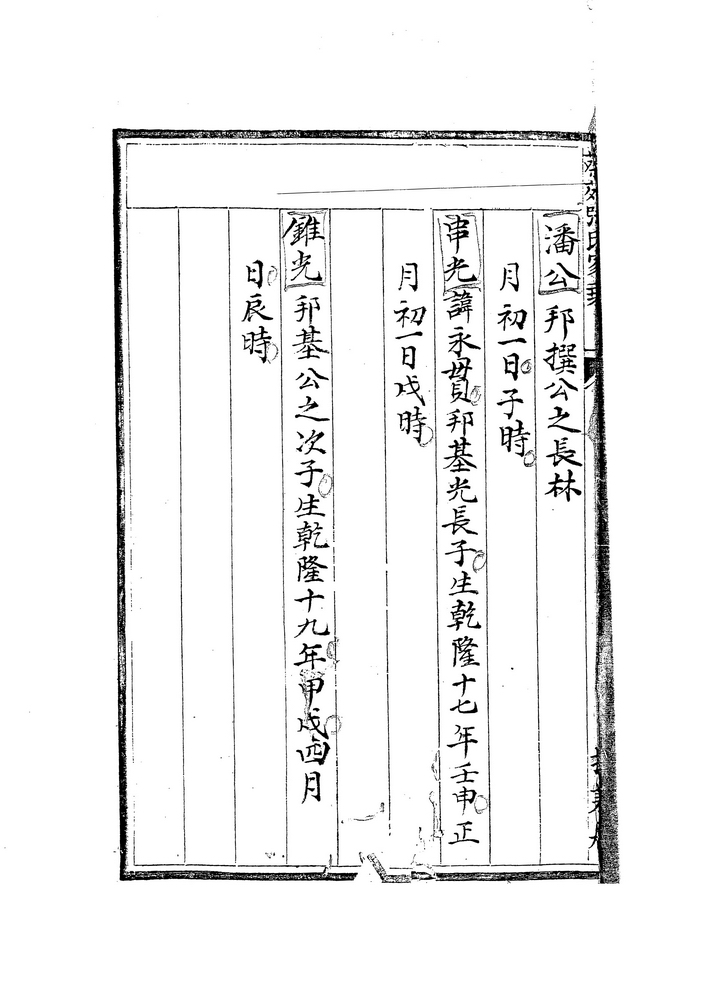 潘公邦撰公之長林
月初一日子時
串光諱永貫邦基光長子生乾隆十七年壬申正
月初一日戌時
錐光邦基公之次子生乾隆十九年甲戌四月
日辰時
張氏家